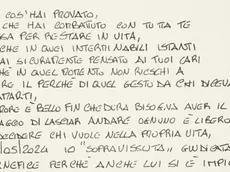 COS'HAI PROVATO,
CHE HAI COMBATTUTO CON TUTTA TE
PER RESTARE IN VITA,
CHE IN QUEI INTERMINABILI ISTANTI
AI SICURAMENTE PENSATO AI TUOI CARI
CHE IN QUEL MOMENTO NON RIESCHI A
RE IL PERCHÉ DI QUEL GESTO DA CHI DICEVA
MARTI,
È BELLO FINCHÈ DURA BISOGNA AVER IL
AGGIO DI LASCIAR ANDARE OGNUNO È LIBERO
DECIDERE CHI VUOLE NELLA PROPRIA VITA,
/05/2024 IO "SOPRAVISSUTA" GIUDICATA
PERCHÈ ANCHE LUI SI È